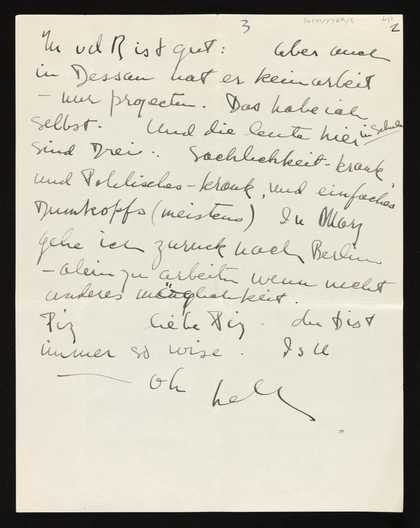 3
2
M vd R ist gut: Aber auch
in Dessau hat er kein arbeit
– nur projecten. Das habe ich
selbst. Und die leute hier in Schule
sind Drei: Sachlichkeit-krank,
und Politisches-krank, und einfaches
Dumkopfs (meistens) In März
gehe ich zuruck nach Berlin
– alein zu arbeiten wenn nicht
anderes möglichkeit.
Piz liebe Piz. du bist
immer so wise. Is
— oh hell